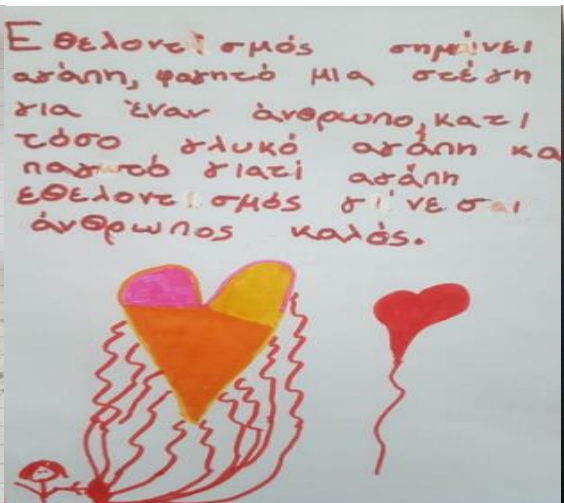 Εθελοντισμός σημαίνει
αγάπη, φαγητό μια στέγη
για έναν άνθρωπο, κατι
τόσο γλυκό αγάπη κα
παγωτό γιατί αγάπη
εθελοντισμός γίνεσαι
άνθρωπος καλός.